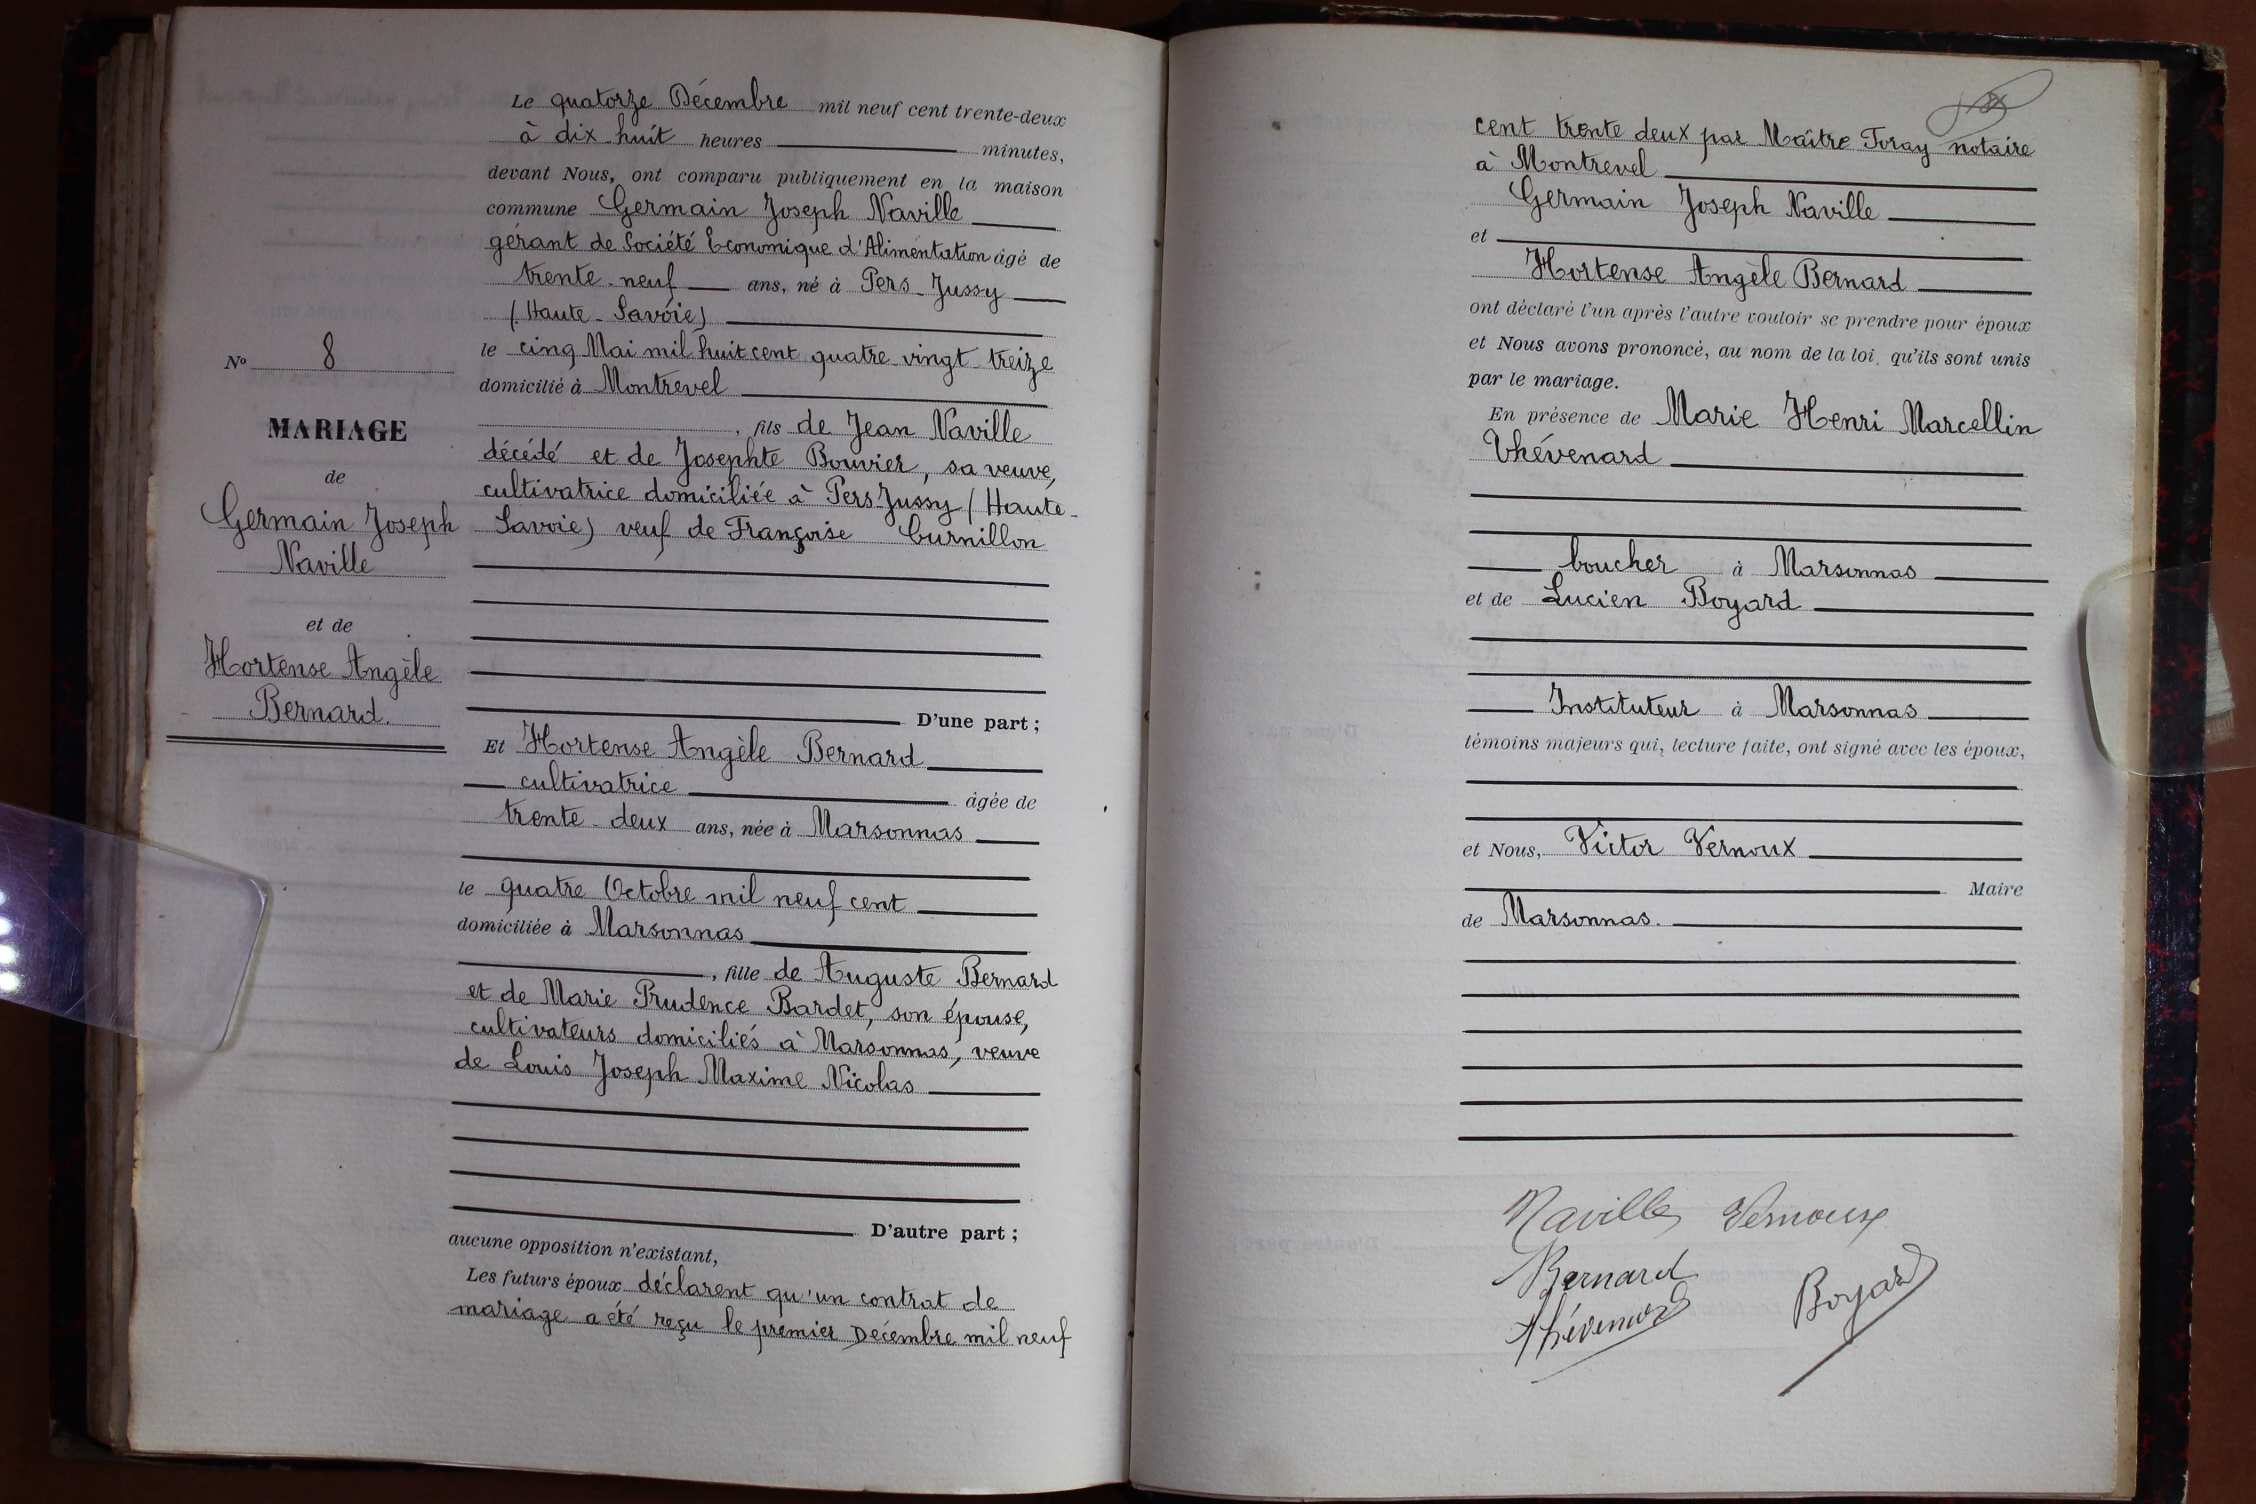 Le quatorze Décembre mil neuf cent trente-deux
à dix-huit heures minutes,
devant Nous, ont comparu publiquement en la maison
commune Germain Joseph Naville
gérant de Société Economique d'Alimentation âgé de
trente-neuf ans, né à Pers-Jussy
(Haute-Savoie)
le cinq Mai mil huit cent quatre-vingt-treize
domicilié à Montrevel
, fils de Jean Naville
décédé et de Josephte Bouvier, sa veuve,
cultivatrice domiciliée à Pers-Jussy (Haute-
Savoie) veuf de Françoise Curnillon
D'une part ;
Et Hortense Angèle Bernard
cultivatrice âgée de
trente-deux ans, née à Marsonnas
le quatre Octobre mil neuf cent
domiciliée à Marsonnas
, fille de Auguste Bernard
et de Marie Prudence Bardet, son épouse,
cultivateurs domiciliés à Marsonnas, veuve
de Louis Joseph Maxime Nicolas
D'autre part ;
aucune opposition n'existant,
Les futurs époux déclarent qu'un contrat de
mariage a été reçu le premier Décembre mil neuf
No 8
MARIAGE
de
Germain Joseph
Naville
et de
Hortense Angèle
Bernard.
cent trente deux par Maître Foray notaire
à Montrevel
Germain Joseph Naville
et
Hortense Angèle Bernard
ont déclaré l'un après l'autre vouloir se prendre pour époux
et Nous avons prononcé, au nom de la loi, qu'ils sont unis
par le mariage.
En présence de Marie Henri Marcellin
Thévenard
boucher à Marsonnas
et de Lucien Boyard
Instituteur à Marsonnas
témoins majeurs qui, lecture faite, ont signé avec les époux,
et Nous, Victor Vernoux
Maire
de Marsonnas.
Naville Vernoux
Bernard
Boyard
Thévenard